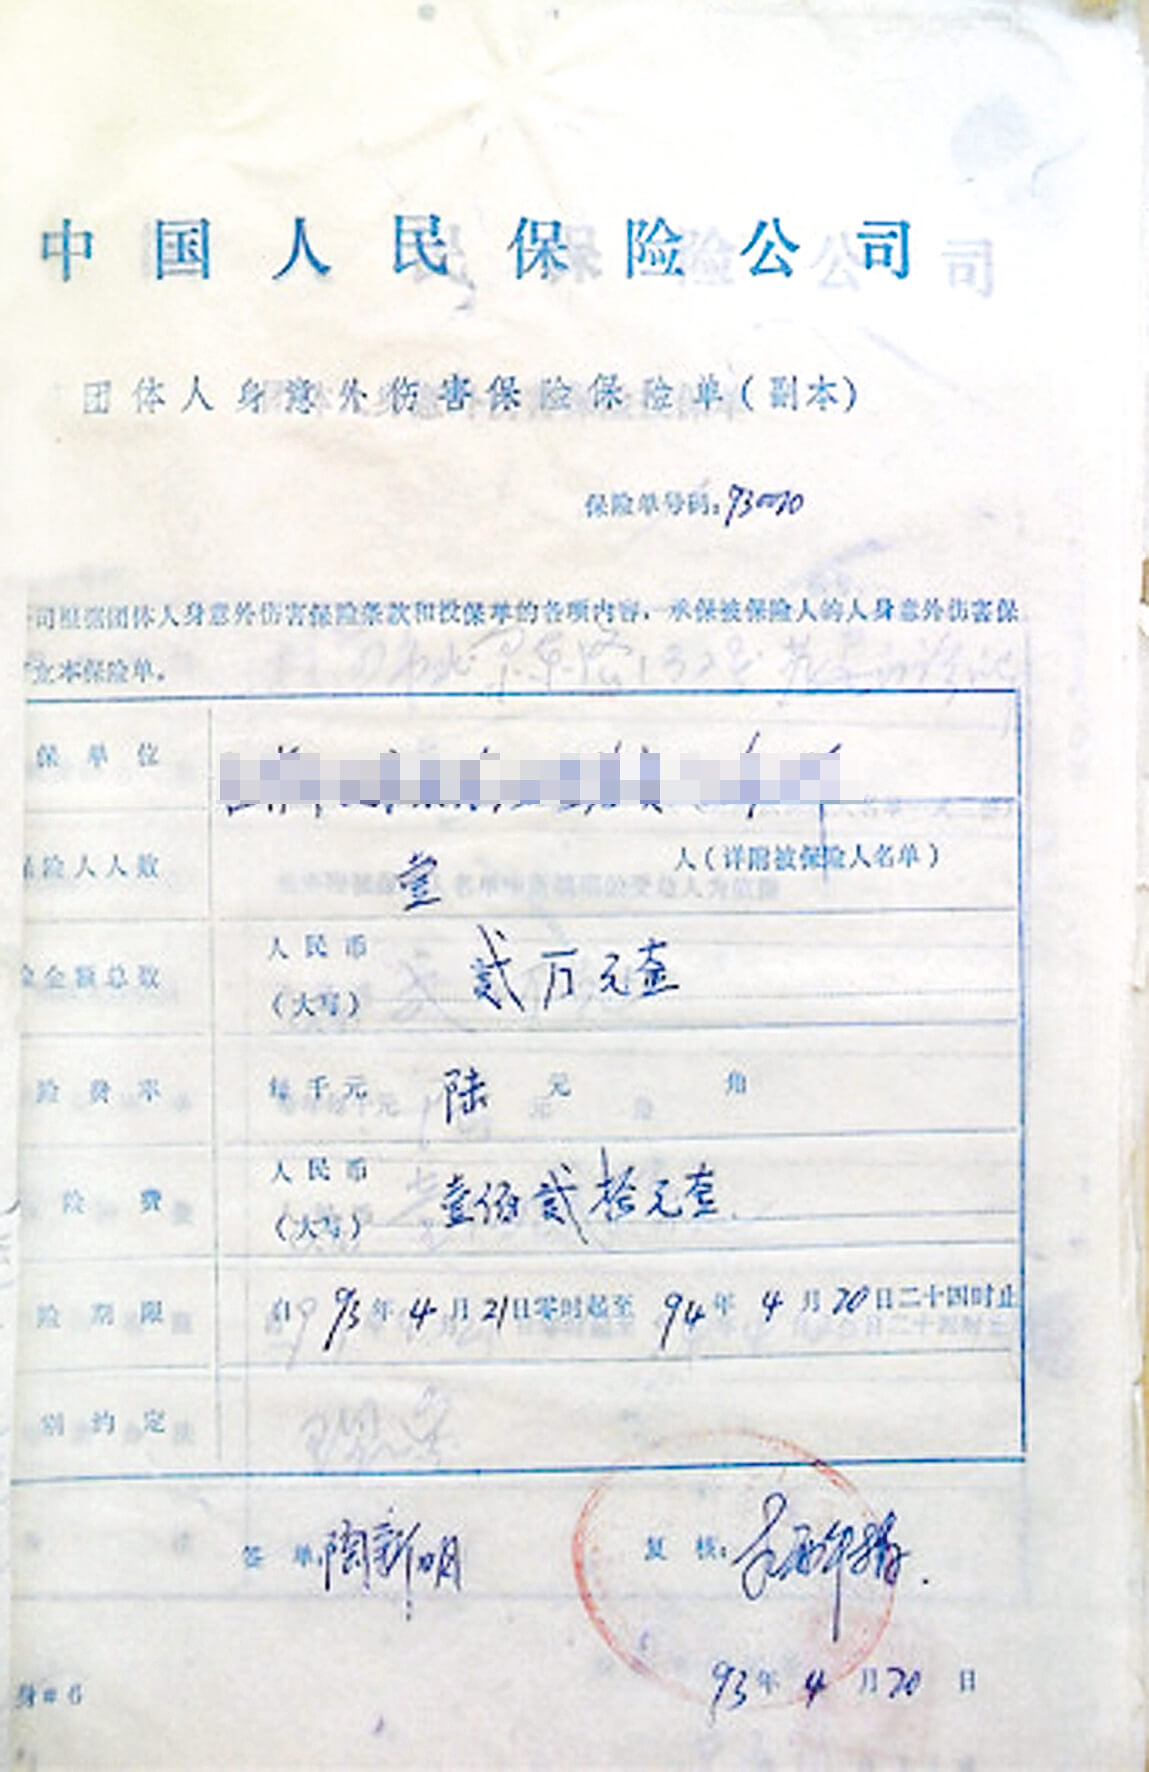 中国人民保险公司
团体人身意外伤害保险保险单(副本)
保险单号码:
司根据团体人身意外伤害保险条款和投保单的各项内容,承保被保险人的人身意外伤害保
立本保险单。
保单位
保险人人数 壹 人(详附被保险人名单)
金额总数 人民币(大写) 贰万元整
险费率 每千元 陆 元 角
险费 人民币(大写) 壹佰贰拾元整
险期限 自93年4月21日零时起至94年4月20日二十四时止
别约定
签单:陶新明 复核:
93年4月20日
身#6